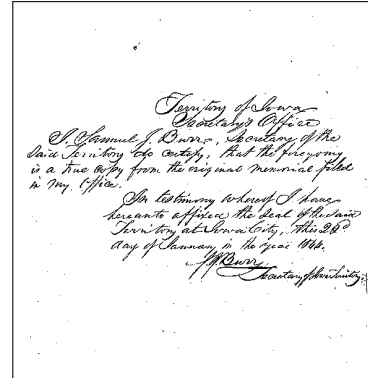 Territory of Iowa
Secretary's Office
I, Samuel J. Burr, Secretary of the
Said Territory do certify, that the foregoing
is a true Copy from the original memorial filed
in my Office.
In testimony whereof I have
hereunto affixed the Seal of the Said
Territory at Iowa City, this 26
day of January in the year 1844.
S J Burr
Secretary of Iowa Territory